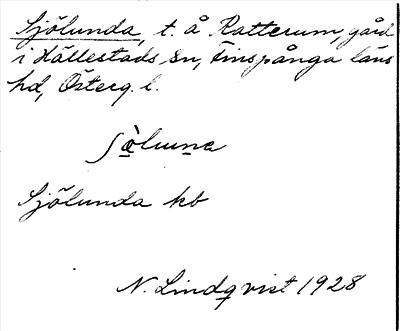 Sjölunda, t. å Ratterum, gård
i Hällestads sn, Finspånga läns
hd, Österg. l.
Sjölunda kb
N. Lindqvist 1928